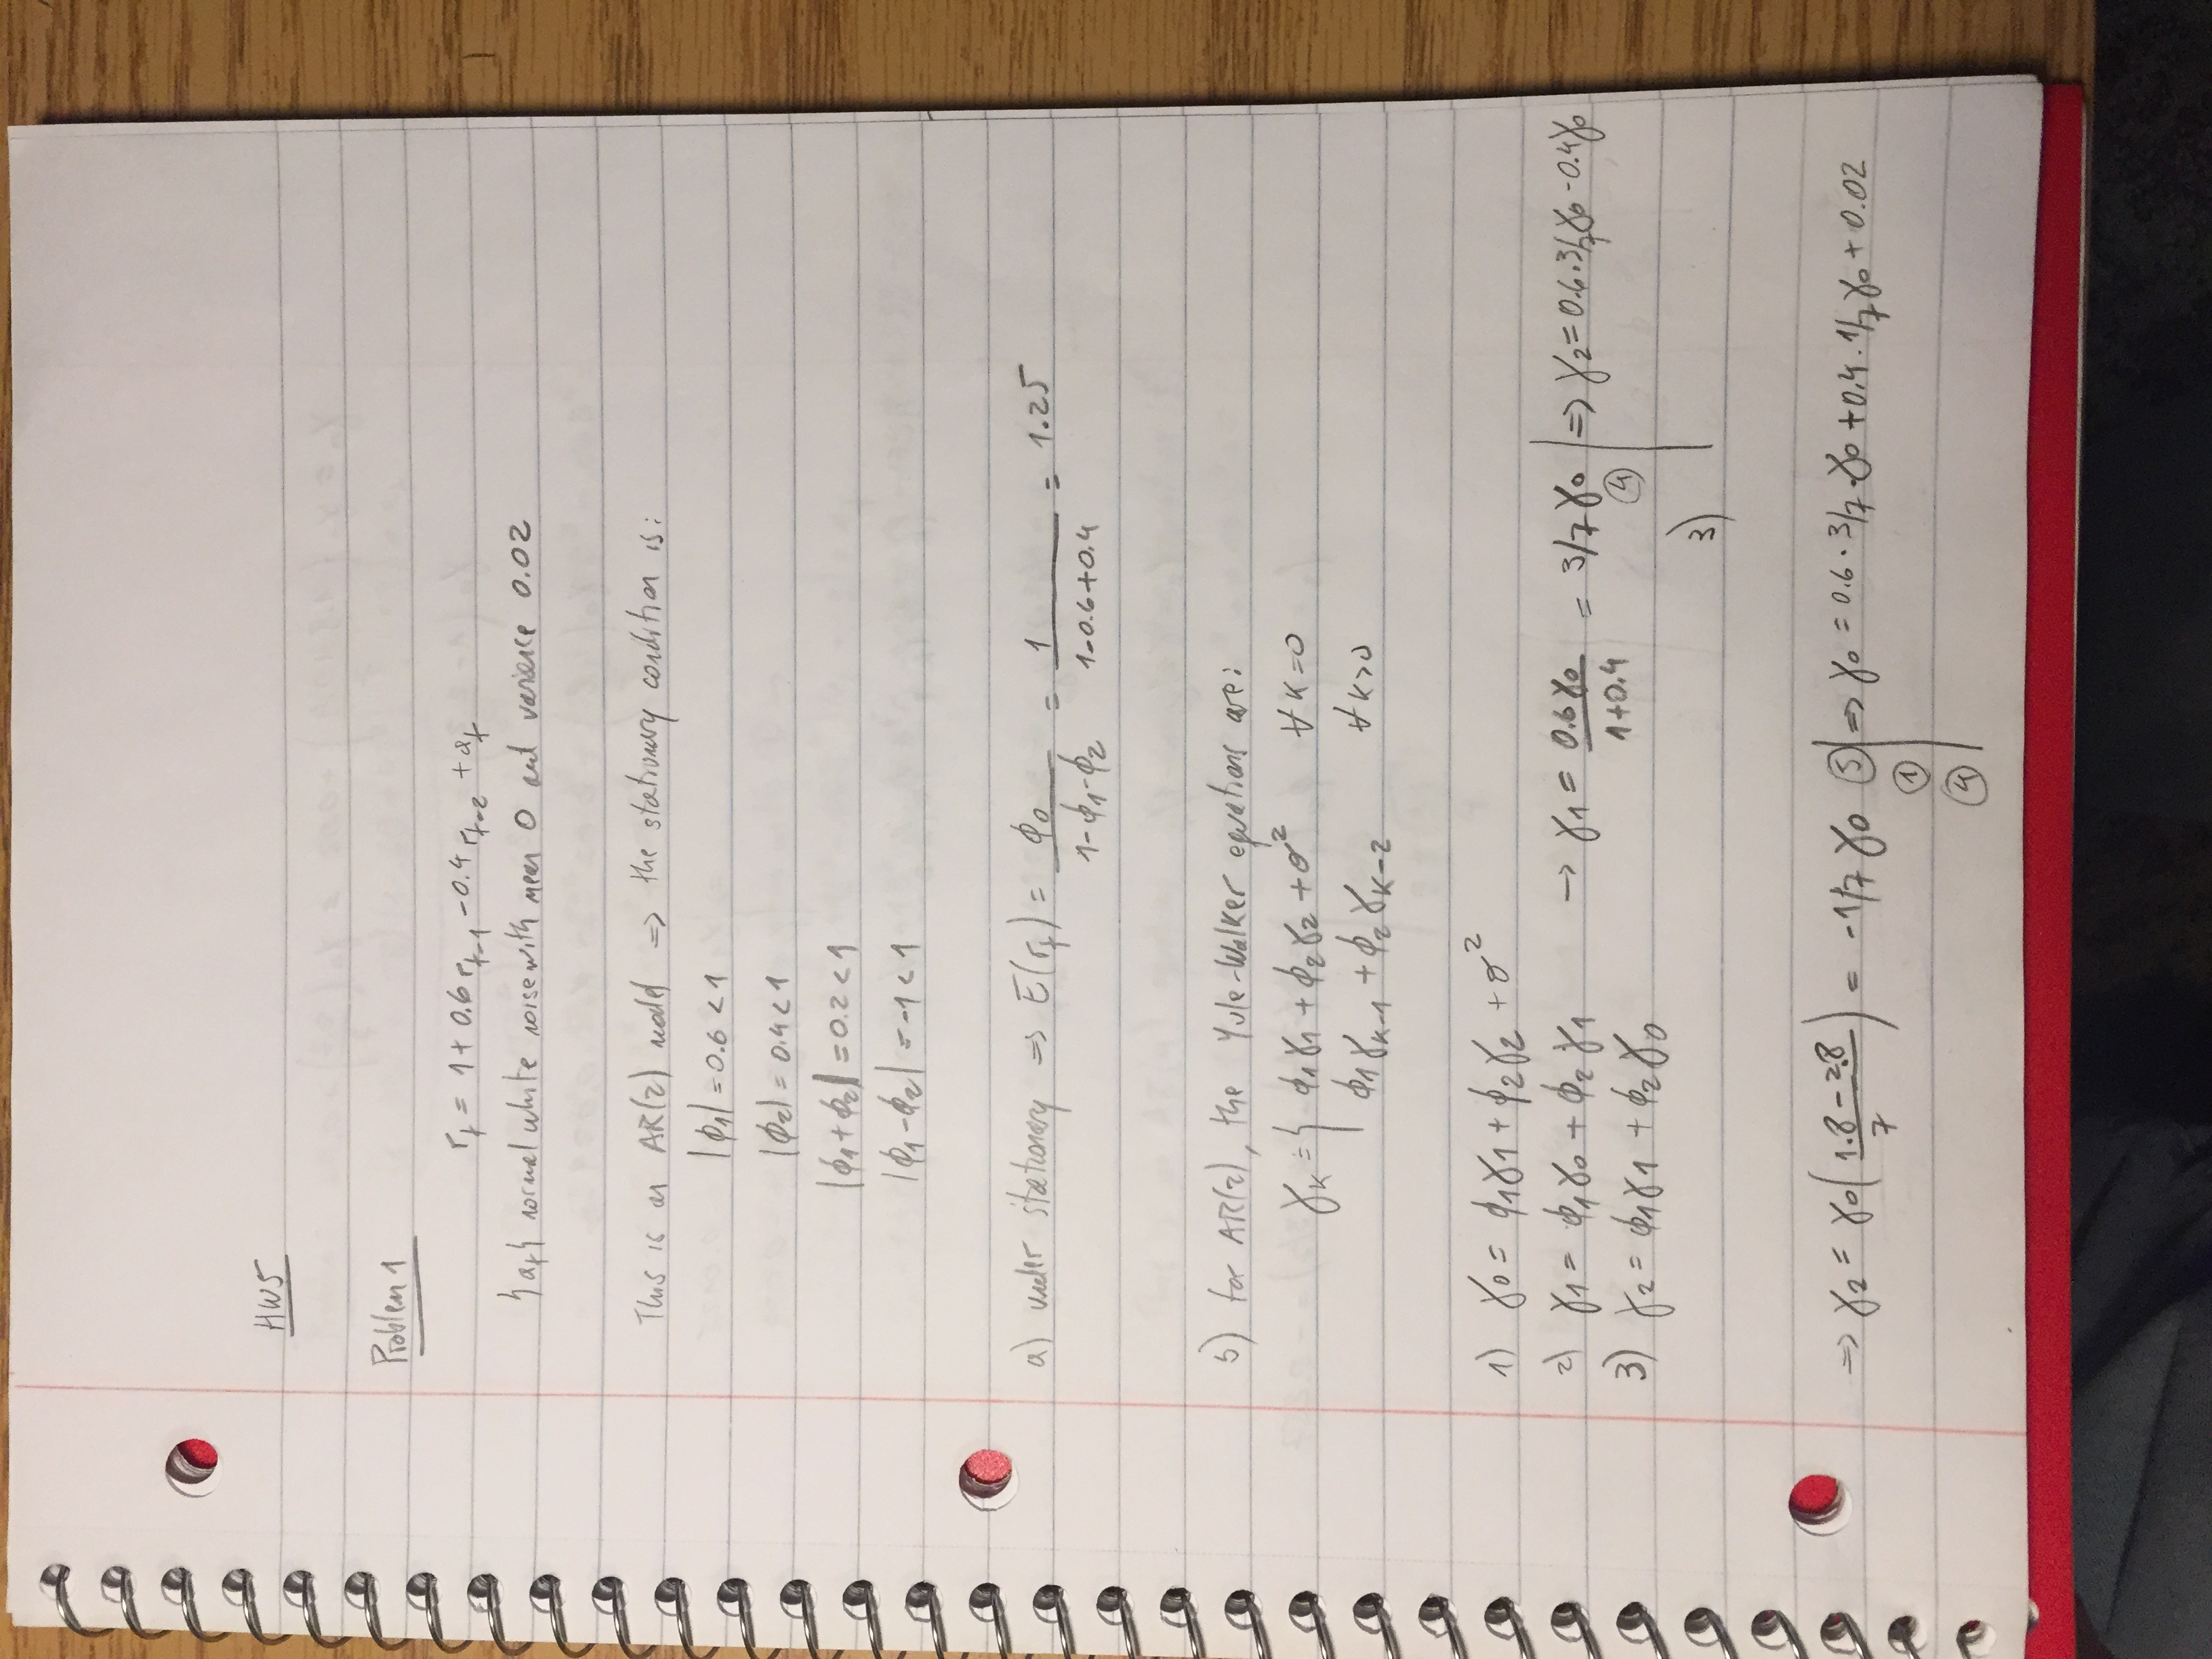 HW5
Problem 1
r_t = 1 + 0.6 r_{t-1} - 0.4 r_{t-2} + a_t
{a_t} normal white noise with mean 0 and variance 0.02
This is an AR(2) model => the stationary condition is:
|ϕ_1| = 0.6 < 1
|ϕ_2| = 0.4 < 1
|ϕ_1 + ϕ_2| = 0.2 < 1
|ϕ_1 - ϕ_2| = -1 < 1
a) under stationary => E(r_t) = ϕ_0 / (1-ϕ_1-ϕ_2) = 1 / (1-0.6+0.4) = 1.25
b) for AR(2), the Yule-Walker equations are:
γ_k = { ϕ_1γ_1 + ϕ_2γ_2 + σ^2 ∀ k=0
ϕ_1γ_{k-1} + ϕ_2γ_{k-2} ∀ k>0
1) γ_0 = ϕ_1γ_1 + ϕ_2γ_2 + σ^2
2) γ_1 = ϕ_1γ_0 + ϕ_2γ_1 → γ_1 = 0.6γ_0 / (1+0.4) = 3/7 γ_0 ④ | => γ_2 = 0.6·3/7γ_0 - 0.4γ_0
3) γ_2 = ϕ_1γ_1 + ϕ_2γ_0
3)
=> γ_2 = γ_0 ((1.8 - 2.8) / 7) = -1/7 γ_0 ⑤ | => γ_0 = 0.6 · 3/7 · γ_0 + 0.4 · 1/7 γ_0 + 0.02
①
④